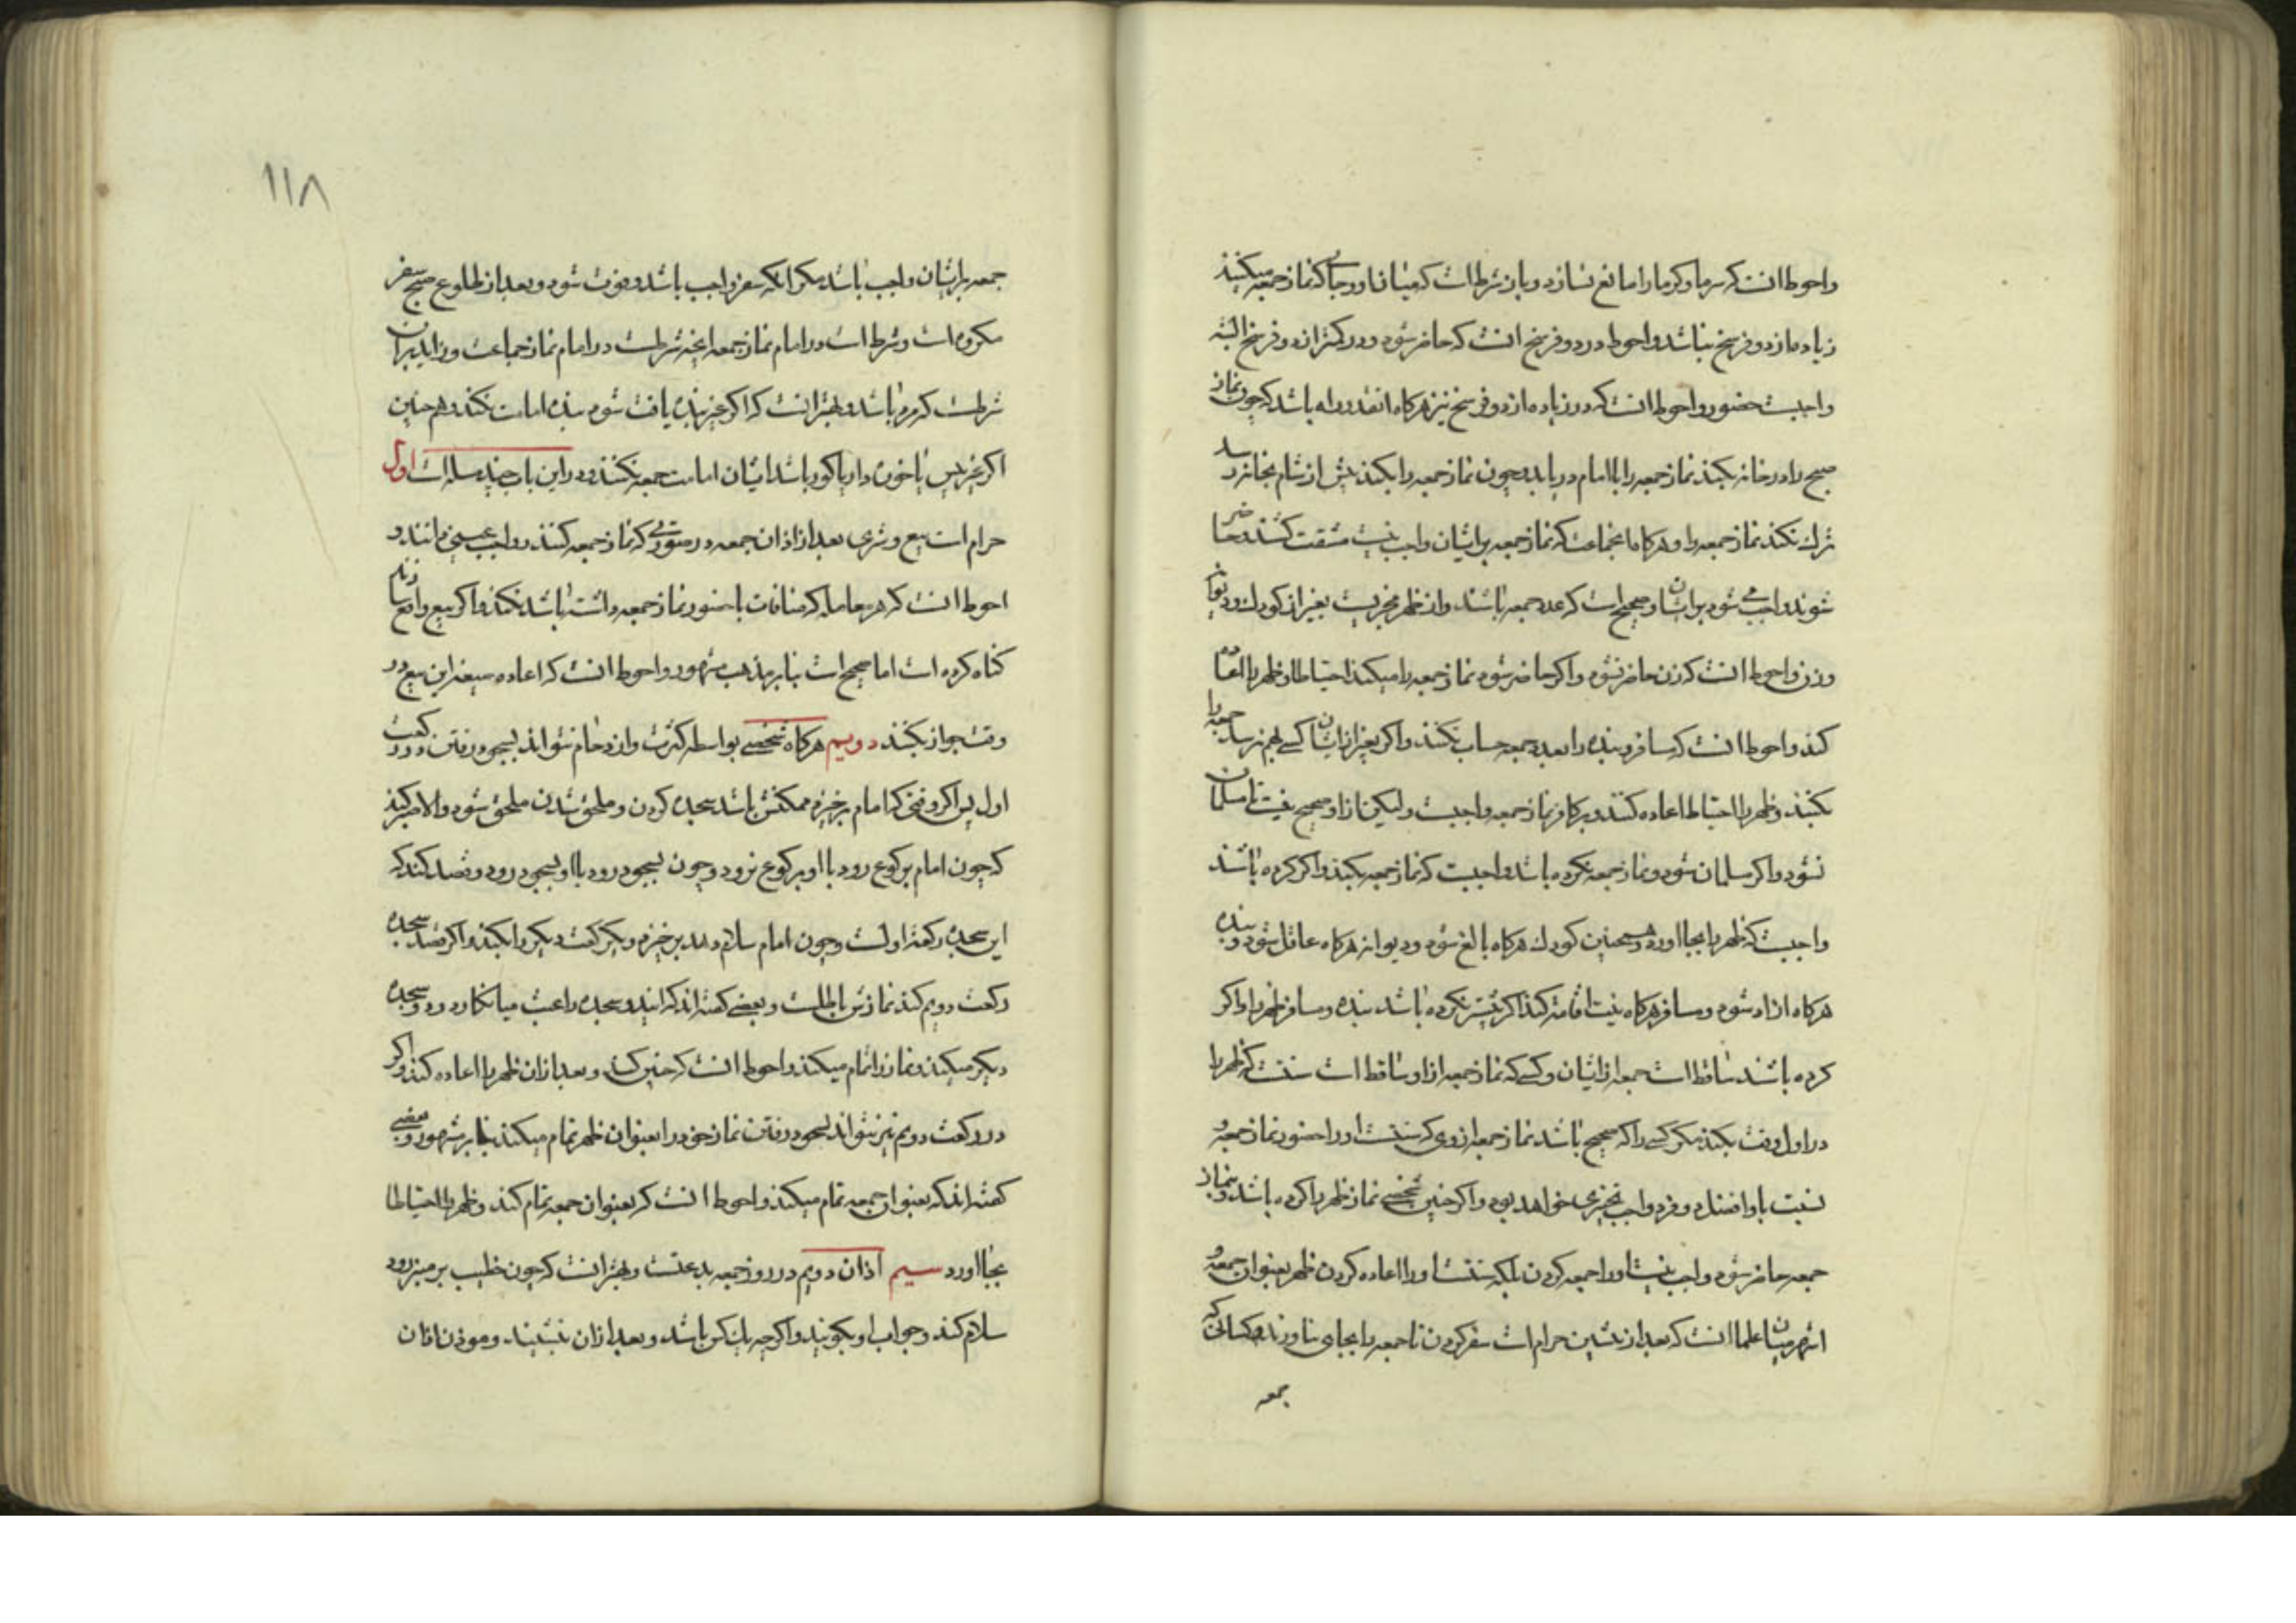 واحوط انست که سرما وکرما را مانع نسازد وباز شرط است که میان او وجائی که نماز جمعه میکنند
زیاده از دو فرسخ نباشد واحوط در دو فرسخ انست که حاضر شود ودر کمتر از دو فرسخ البته
واجبست حضور واحوط انست که در زیاده از دو فرسخ نیز هرکاه انقدر راه باشد که چون نماز
صبح را در خانه بکند نماز جمعه را با امام دریابد وچون نماز جمعه را بکند پیش از شام بخانه رسد
ترک نکند نماز جمعه را وهرکاه جماعتی که نماز جمعه بر ایشان واجب نیست مشقت کشند وحاضر
شوند واجب می شود بر ایشان وصحیح است که عدد جمعه باشند واز ظهر مجزیست بغیر از کودک ودیوانه
وزن واحوط انست که زن حاضر نشود واکر حاضر شود نماز جمعه را میکند احتیاطا وظهر را اعاده
کند واحوط انست که مسافر وبنده را بعدد جمعه حساب نکنند واکر بغیر از ایشان کسی بهم نرسد جمعه را
بکنند وظهر را احتیاطا اعاده کنند وبر کافر نماز جمعه واجبست ولیکن از او صحیح نیست تا مسلمان
نشود واکر مسلمان شود ونماز جمعه نکرده باشد واجبست که نماز جمعه بکند واکر کرده باشند
واجبست که ظهر را بجا اورد وهمچنین کودک هرکاه بالغ شود ودیوانه هرکاه عاقل شود وبنده
هرکاه ازاد شود ومسافر هرکاه نیت اقامه کند اکر پیشتر نکرده باشد بنده ومسافر ظهر را واکر
کرده باشند ساقط است جمعه از ایشان وکسی که نماز جمعه از او ساقط است سنتست که ظهر را
در اول وقت بکند مکر کسی را که صحیح باشد نماز جمعه از وی که سنتست او را حضور نماز جمعه و
نسبت باو افضل دو فرد واجب تخییری خواهد بود واکر چنین شخصی نماز ظهر را کرده باشد وبنماز
جمعه حاضر شود واجب نیست او را جمعه کردن بلکه سنتست او را اعاده کردن ظهر بعنوان جمعه و
اشهر میان علما انست که بعد از پیشین حرام است سفر کردن تا جمعه را بجای نیاورند وکسانی که
جمعه
١١٨
جمعه بر ایشان واجب باشد مکر انکه سفر واجب باشد وفوت شود وبعد از طلوع صبح سفر
مکروه است وشرط است در امام نماز جمعه انچه شرطست در امام نماز جماعت وزاید بر ان
شرطست که مرد باشد وبهتر انست که اکر غیر بنده یافت شود بنده امامت نکند وهم چنین
اکر غیر پیس یا خوره دار یا کور باشد ایشان امامت جمعه نکنند ودر این باب چند مساله است اول
حرام است بیع وشری بعد از اذان جمعه در صورتی که نماز جمعه کنند وواجب عینی دانند و
احوط انست که هر معامله که منافات با حضور نماز جمعه داشته باشد نکنند واکر بیع واقع سازند
کناه کرده است اما صحیح است بنابر مذهب مشهور واحوط انست که اعاده صیغه این بیع در
وقت جواز بکنند دویم هرکاه شخصی بواسطه کثرت وازدحام نتواند بسجود رفتن در رکعت
اول پس اکر وقتی که امام برخیزد ممکنش باشد سجده کردن وملحق شدن ملحق شود والا صبر کند
که چون امام برکوع رود با او برکوع نرود وچون بسجود رود با او بسجود رود وقصد کند که
این سجده رکعت اولست وچون امام سلام دهد برخیزد ویک رکعت دیکر را بکند واکر قصد سجده
رکعت دویم کند نمازش باطلست وبعضی کفته اند که این دو سجده را عبث میانکارد ودو سجده
دیکر میکند ونماز را تمام میکند واحوط انست که چنین کند وبعد از ان ظهر را اعاده کند واکر
در رکعت دویم نیز نتواند بسجود رفتن نماز خود را بعنوان ظهر تمام میکند بنابر مشهور وبعضی
کفته اند که بعنوان جمعه تمام میکند واحوط انست که بعنوان جمعه تمام کند وظهر را احتیاطا
بجا اورد سیم اذان دویم در روز جمعه بدعتست وبهتر انست که چون خطیب بر منبر رود
سلام کند وجواب او بکویند واکرچه یک کس باشد وبعد از ان بنشیند وموذن اذان